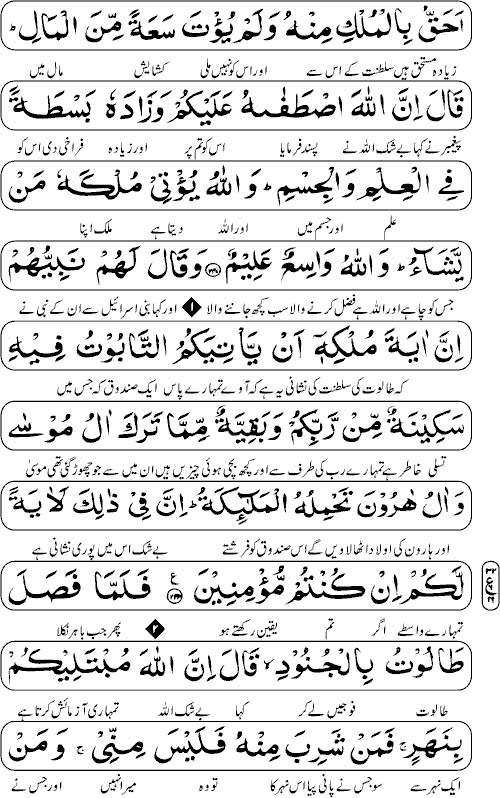 اَحَقُّ بِالْمُلْكِ مِنْهُ وَلَمْ يُؤْتَ سَعَةً مِّنَ الْمَالِ ؕ
زیادہ مستحق ہیں سلطنت کے اس سے اور اس کو نہیں ملی کشایش مال میں
قَالَ اِنَّ اللّٰهَ اصْطَفٰىهُ عَلَيْكُمْ وَزَادَهٗ بَسْطَةً
پیغمبر نے کہا بے شک اللہ نے پسند فرمایا اس کو تم پر اور زیادہ فراخی دی اس کو
فِي الْعِلْمِ وَالْجِسْمِ ؕ وَاللّٰهُ يُؤْتِيْ مُلْكَهٗ مَنْ
علم اور جسم میں اور اللہ دیتا ہے ملک اپنا
يَّشَآءُ ؕ وَاللّٰهُ وَاسِعٌ عَلِيْمٌ ﴿۲۴۷﴾ وَقَالَ لَهُمْ نَبِيُّهُمْ
جس کو چاہے اور اللہ ہے فضل کرنے والا سب کچھ جاننے والا ۱ اور کہا بنی اسرائیل سے ان کے نبی نے
اِنَّ اٰيَةَ مُلْكِهٖۤ اَنْ يَّاْتِيَكُمُ التَّابُوْتُ فِيْهِ
کہ طالوت کی سلطنت کی نشانی یہ ہے کہ آوے تمہارے پاس ایک صندوق کہ جس میں
سَكِيْنَةٌ مِّنْ رَّبِّكُمْ وَبَقِيَّةٌ مِّمَّا تَرَكَ اٰلُ مُوْسٰى
تسلی خاطر ہے تمہارے رب کی طرف سے اور کچھ بچی ہوئی چیزیں ہیں ان میں سے جو چھوڑ گئی تھی موسیٰ
وَاٰلُ هٰرُوْنَ تَحْمِلُهُ الْمَلٰٓئِكَةُ ؕ اِنَّ فِيْ ذٰلِكَ لَاٰيَةً
اور ہارون کی اولاد اٹھا لاویں گے اس صندوق کو فرشتے بے شک اس میں پوری نشانی ہے
لَّكُمْ اِنْ كُنْتُمْ مُّؤْمِنِيْنَ ﴿۲۴۸﴾ ع فَلَمَّا فَصَلَ
تمہارے واسطے اگر تم یقین رکھتے ہو ۲ پھر جب باہر نکلا
طَالُوْتُ بِالْجُنُوْدِ ۙ قَالَ اِنَّ اللّٰهَ مُبْتَلِيْكُمْ
طالوت فوجیں لے کر کہا بے شک اللہ تمہاری آزمائش کرتا ہے
بِنَهَرٍ ۚ فَمَنْ شَرِبَ مِنْهُ فَلَيْسَ مِنِّيْ ۚ وَمَنْ
ایک نہر سے سو جس نے پانی پیا اس نہر کا تو وہ میرا نہیں اور جس نے